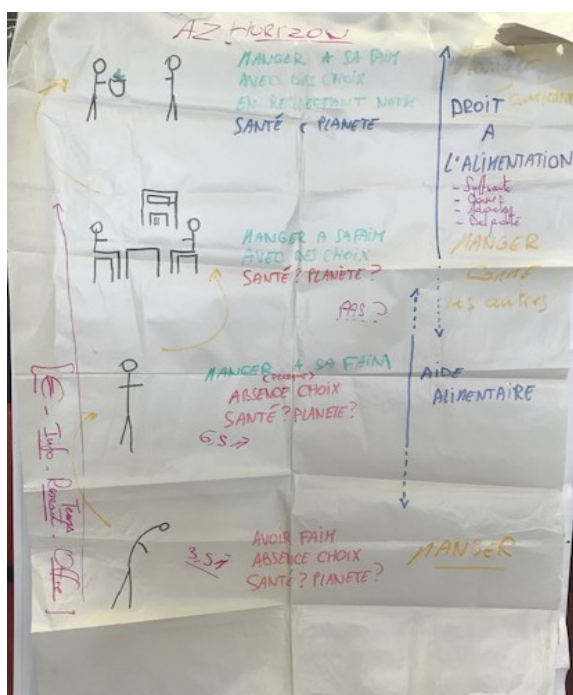 AZ HORIZON
MANGER A SA FAIM
AVEC DES CHOIX
EN RESPECTANT NOTRE
SANTÉ & PLANETE
Manger
DROIT
A
L'ALIMENTATION
- Suffisante
- Durable
MANGER
COMME
les autres
MANGER A SA FAIM
AVEC DES CHOIX
SANTÉ? PLANÈTE?
PAS?
MANGER A SA FAIM
ABSENCE CHOIX
SANTÉ? PLANETE?
AIDE
ALIMENTAIRE
AVOIR FAIM
ABSENCE CHOIX
SANTÉ? PLANETE?
MANGER
[€ - Info - - Offre]
Temps